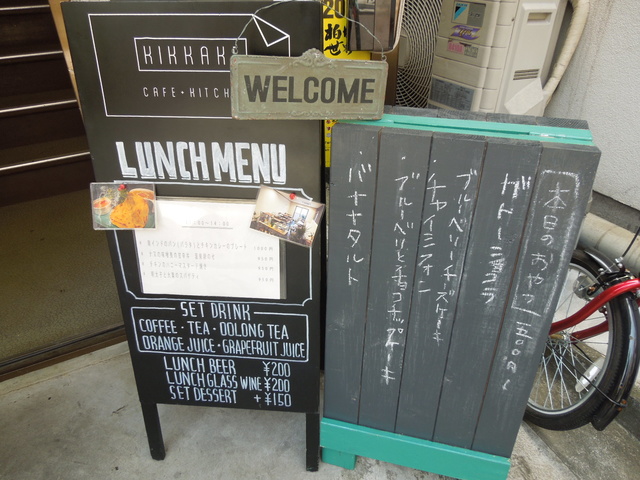 KIKKAK
CAFE・KITCH
WELCOME
LUNCH MENU
SET DRINK
COFFEE・TEA・OOLONG TEA
ORANGE JUICE・GRAPEFRUIT JUICE
LUNCH BEER ¥200
LUNCH GLASS WINE ¥200
SET DESSERT +¥150
本日のおやつ 五〇〇円〜
ガトーショコラ
ブルーベリーチーズケーキ
・チャイシフォン
・ブルーベリとチョコチップケーキ
・バナナタルト